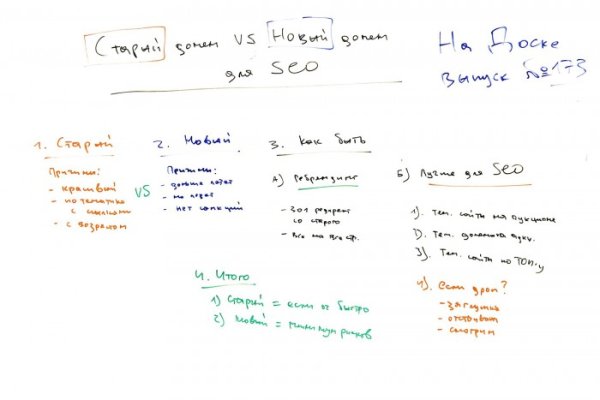 Старый домен VS Новый домен
для SEO
На Доске
выпуск №173
1. Старый
Причины:
- красивый
- по тематике
с ссылками
- с возрастом
VS
2. Новый
Причины:
- дольше
- нет санкций
3. Как быть
А) Ребрендинг
- 301 редирект
со старого
- Все на все стр.
Б) Лучше для SEO
1). Тем. сайты на аукционе
2). Тем. домены аукц.
3). Тем. сайты по ТОП-у
4). если дроп?
- заглушка
- отстаиваем
- смотрим
4. Итого
1) Старый = если оч быстро
2) Новый = минимум рисков